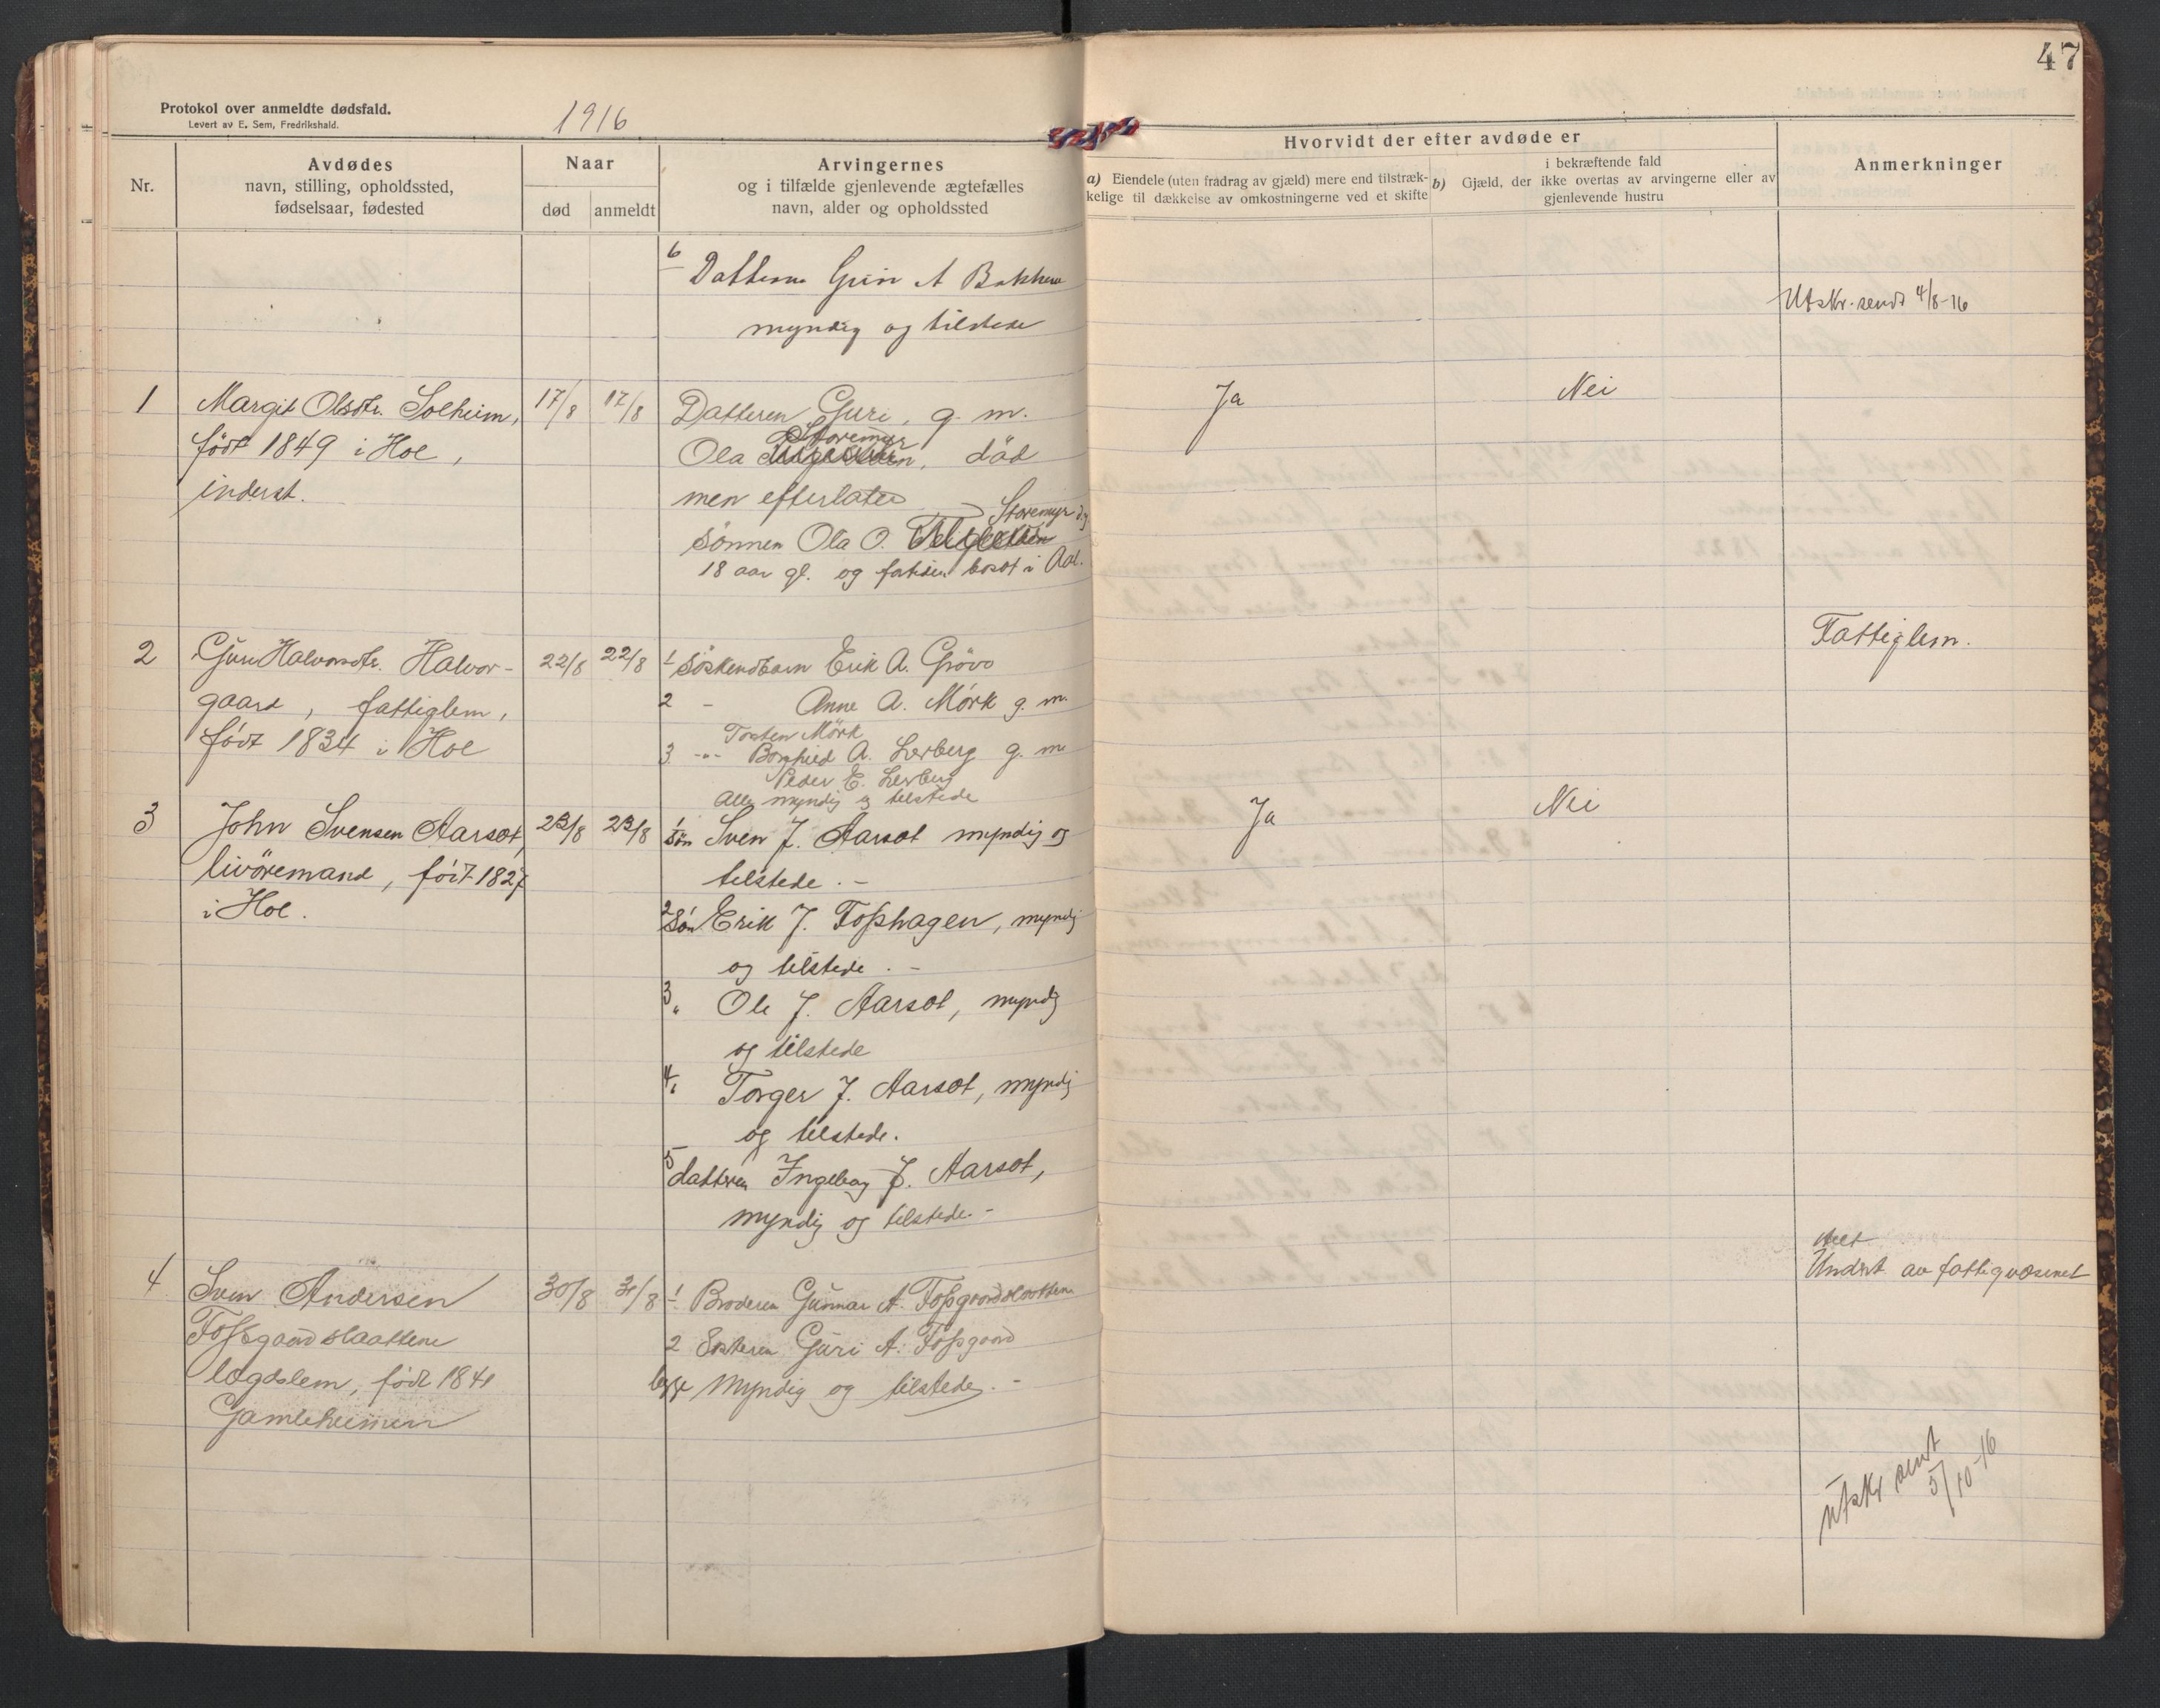 47
Protokol over anmeldte dødsfald.
Levert av E. Sem, Fredrikshald.
1916
Nr.
Avdødes
navn, stilling, opholdssted,
fødselsaar, fødested
Naar
død
anmeldt
Arvingernes
og i tilfælde gjenlevende ægtefælles
navn, alder og opholdssted
Hvorvidt der efter avdøde er
a) Eiendele (uten fradrag av gjæld) mere end tilstræk-
kelige til dækkelse av omkostningerne ved et skifte
b) Gjæld, der
i bekræftende fald
ikke overtas av arvingerne eller av
gjenlevende hustru
Anmerkninger
6 Datteren Guri A Bakken
myndig og tilstede
Utskr. sendt 4/8-16
1
Margit Olsdtr. Solheim,
født 1849 i Hol,
inderst.
17/8
17/8
Datteren Guri, g. m.
Storemyr
Ola, död
men efterlater
Storemyr
sönnen Ola O.
18 aar gl. og fortiden bosat i Aal.
Ja
Nei
2
Guri Halvorsdtr. Halvor-
gaard, fattiglem,
födt 1834 i Hol
22/8
22/8
1 Söskendbarn Erik A. Grövo
2 - Anne A. Mörk g. m.
Torsten Mörk
3 -"- Borghild A. Lerberg g. m
Peder E. Lerberg
Alle myndig og tilstede
Fattiglem.
3
John Svensen Aarsot,
livöremand, födt 1827
i Hol.
23/8
23/8
1 Sön Sven J. Aarsot myndig og
tilstede. -
2 Sön Erik J. Fosshagen, myndig
og tilstede. -
3 " Ole J. Aarsot, myndig
og tilstede
4 " Torger J. Aarsot, myndig
og tilstede.
5 datteren Ingeborg J. Aarsot,
myndig og tilstede. -
Ja
Nei
4
Sven Andersen
Fossgaardslaatten
lægdslem, födt 1841
Gamleheimen
30/8
31/8
1 Broderen Gunnar A. Fossgaardslaatten
2 Sösteren Guri A. Fossgaard
begge Myndig og tilstede. -
Underst av fattigvæsenet
Utskr sent
5/10-16